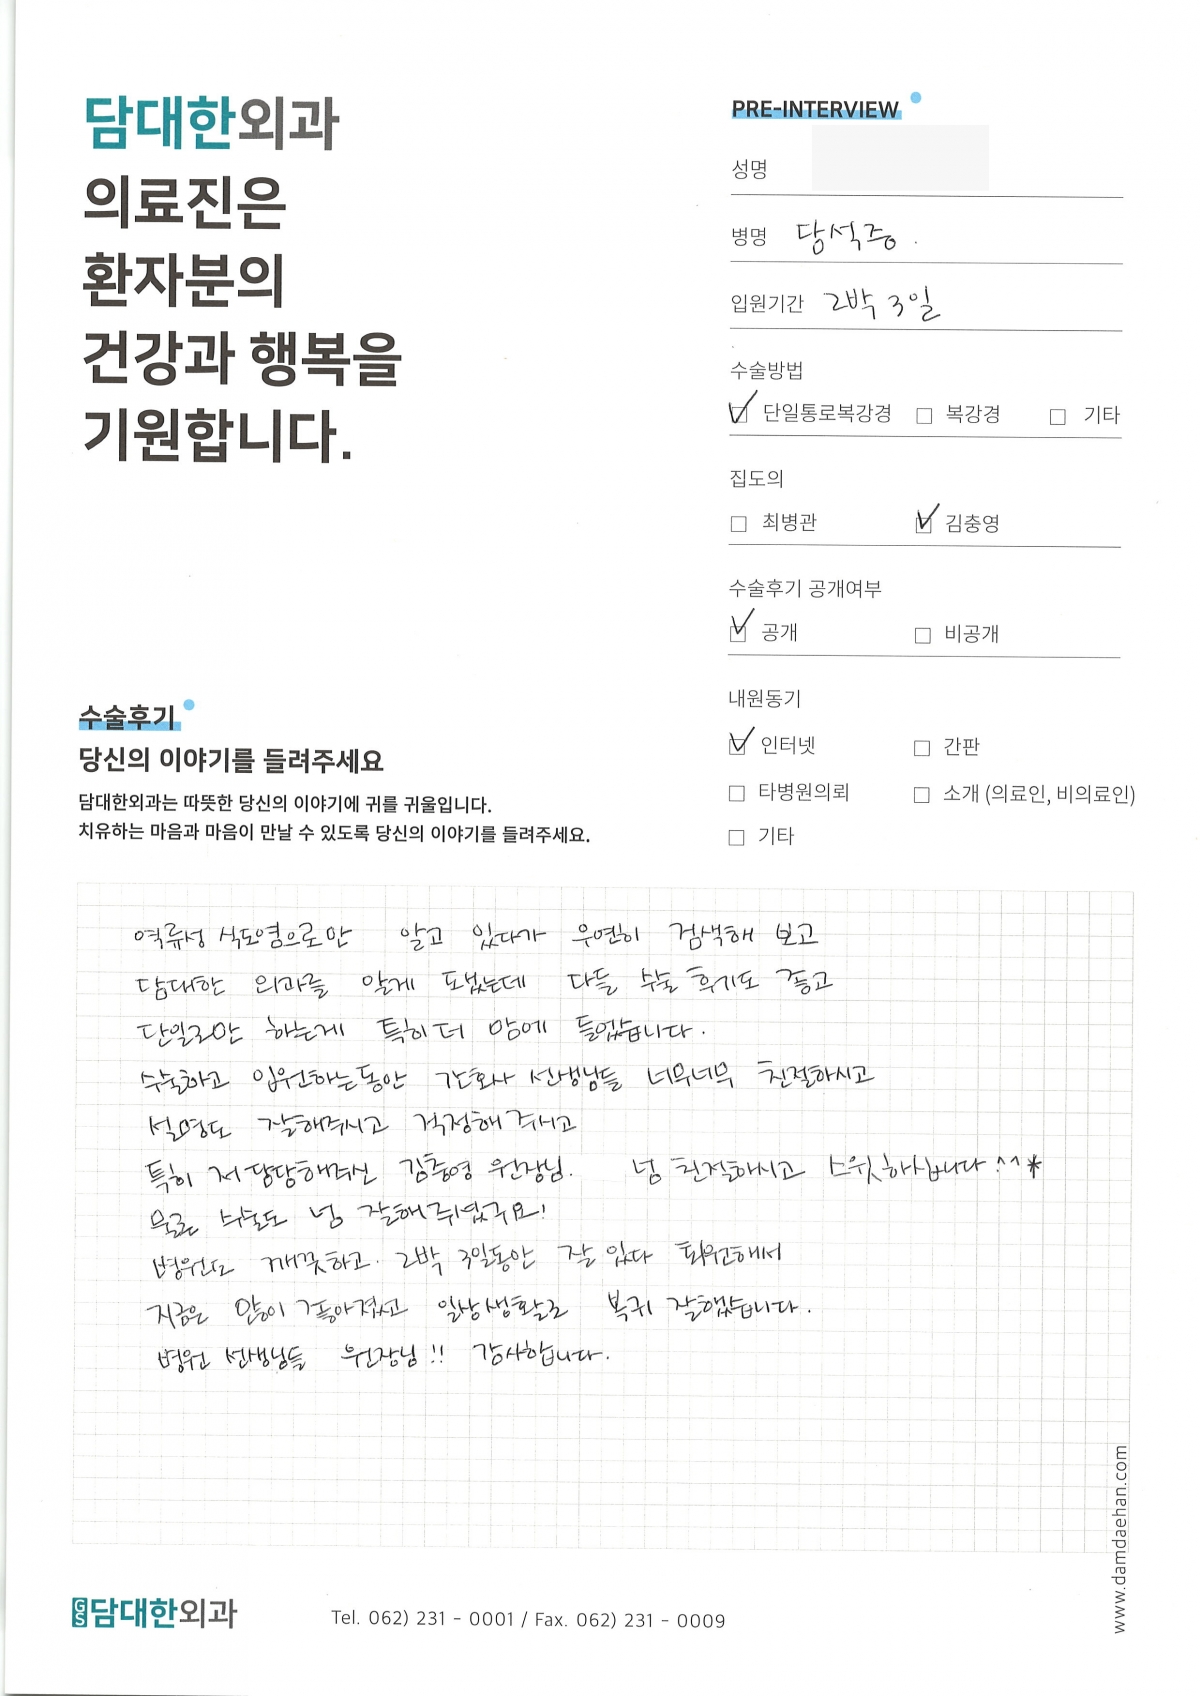 담대한외과
의료진은
환자분의
건강과 행복을
기원합니다.
PRE-INTERVIEW
성명
병명 담석증.
입원기간 2박 3일
수술방법
단일통로복강경 복강경 기타
집도의
최병관 김충영
수술후기 공개여부
공개 비공개
내원동기
인터넷 간판
타병원의뢰 소개 (의료인, 비의료인)
기타
수술후기
당신의 이야기를 들려주세요
담대한외과는 따뜻한 당신의 이야기에 귀를 귀울입니다.
치유하는 마음과 마음이 만날 수 있도록 당신의 이야기를 들려주세요.
역류성 식도염으로만 알고 있다가 우연히 검색해 보고
담대한 외과를 알게 됬는데 다들 수술 후기도 좋고
단일로만 하는게 특히 더 맘에 들었습니다.
수술하고 입원하는동안 간호사 선생님들 너무너무 친절하시고
설명도 잘해주시고 걱정해 주시고
특히 저 담당해주신 김충영 원장님. 넘 친절하시고 스윗하십니다 ^^*
물론 수술도 넘 잘해주셨구요!
병원도 깨끗하고. 2박 3일동안 잘 있다 퇴원해서
지금은 많이 좋아졌고 일상생활로 복귀 잘했습니다.
병원 선생님들 원장님!! 감사합니다.
GS담대한외과
Tel. 062) 231 - 0001 / Fax. 062) 231 - 0009
www.damdaehan.com